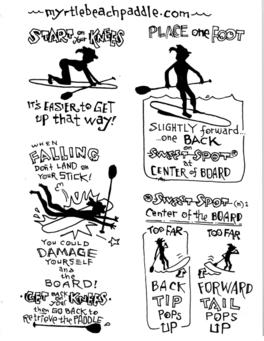 myrtlebeachpaddle.com
START on your KNEES
IT'S EASIER to GET
up that way!
PLACE one FOOT
SLIGHTLY forward...
...one BACK
on
SWEET SPOT
at
CENTER of BOARD
WHEN
FALLING
DON'T LAND on
YOUR STICK!
YOU COULD
DAMAGE
YOURSELF
and
the
BOARD!
GET BACK on your KNEES
then GO BACK to
RETRIEVE the PADDLE
SWEET SPOT (n):
Center of the BOARD
TOO FAR
BACK
TIP
POPS
UP
TOO FAR
FORWARD
TAIL
POPS
UP